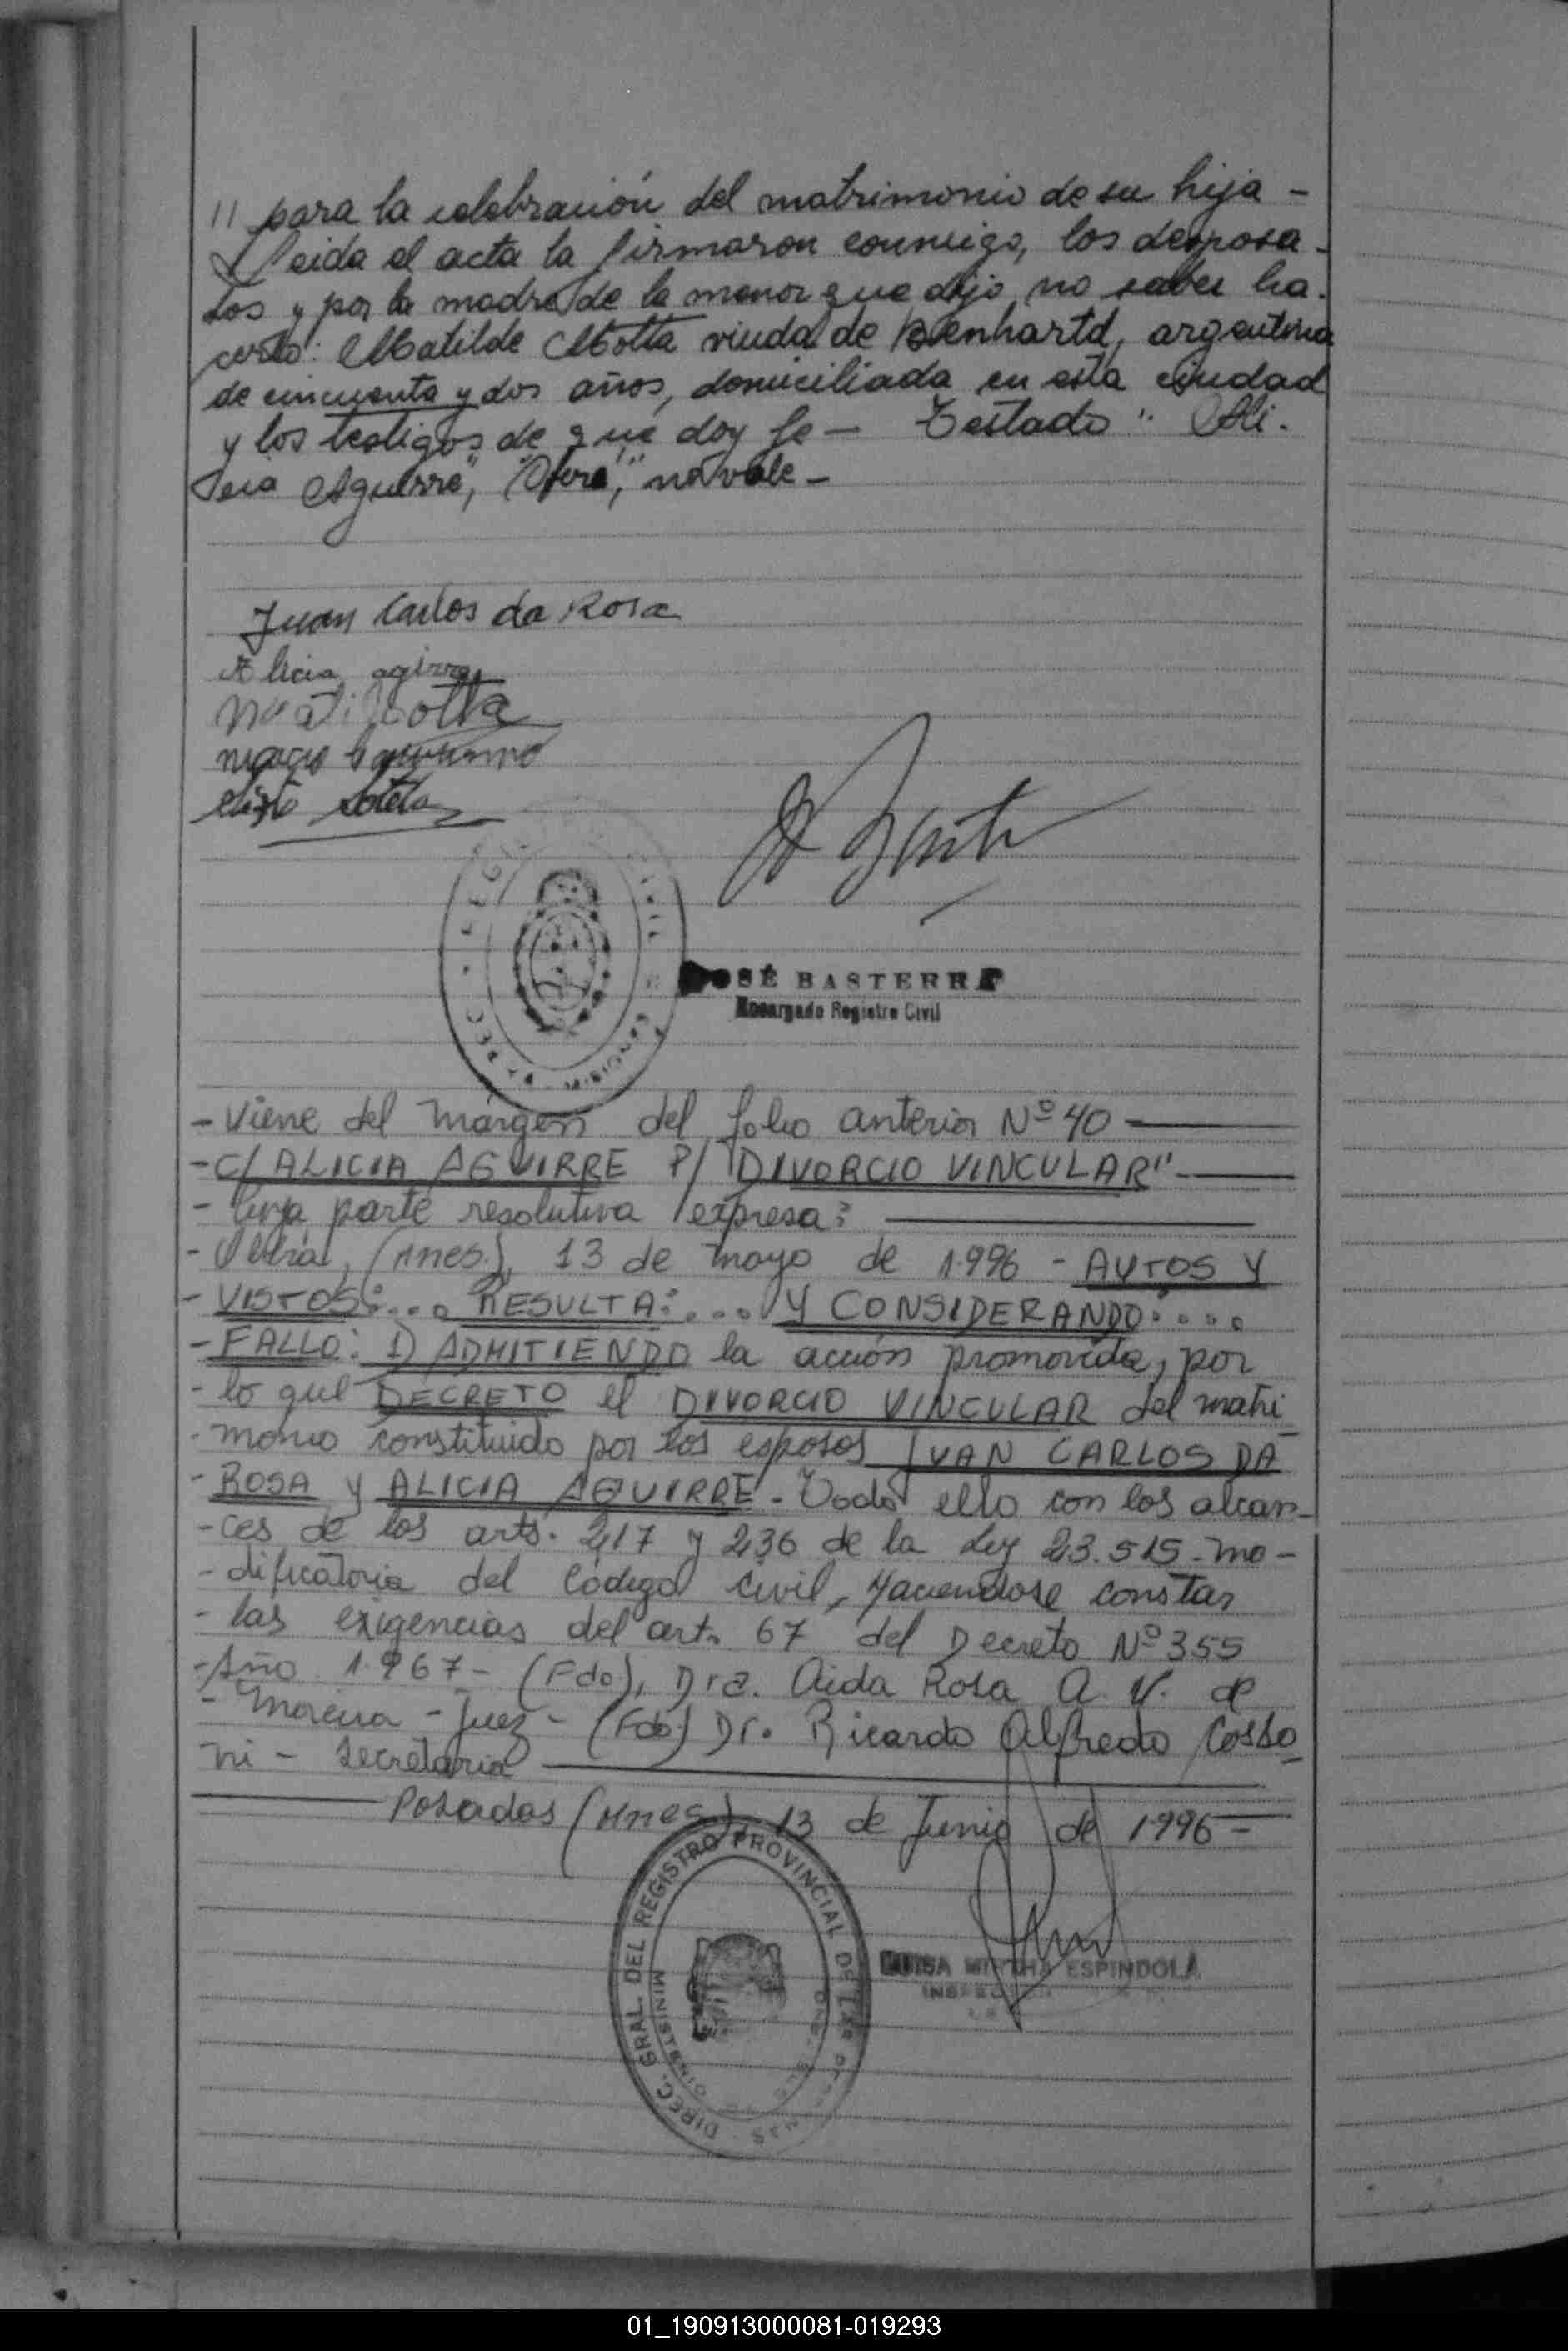 // para la celebración del matrimonio de su hija -
Leida el acta la firmaron conmigo, los desposa-
dos y por la madre de la menor que dijo no saber ha-
cerlo: Matilde Motta viuda de Benhartd, argentina
de cincuenta y dos años, domiciliada en esta ciudad
y los testigos de que doy fe — Testado: "Ali-
cia Aguirre", "Obera", no vale -
Juan Carlos da Rosa
Alicia agirre
Motta
Sixto Sotelo
JOSÉ BASTERRA
Encargado Registro Civil
- Viene del márgen del folio anterior Nº 40 —
- C/ ALICIA AGUIRRE P/ "DIVORCIO VINCULAR" -
- Cuya parte resolutiva expresa: —
- Oberá, (Mnes.), 13 de mayo de 1.996 - AUTOS Y
- VISTOS:... RESULTA:... Y CONSIDERANDO:....
- FALLO: 1) ADMITIENDO la acción promovida, por
- lo que DECRETO el DIVORCIO VINCULAR del matri
- monio constituido por los esposos JUAN CARLOS DA
- ROSA Y ALICIA AGUIRRE - Todo ello con los alcan-
- ces de los arts. 217 y 236 de la Ley 23.515 - mo -
- dificatoria del Código Civil, Haciendose constar
- las exigencias del art. 67 del Decreto Nº 355
- Año 1.967 - (Fdo), Dra. Aida Rosa A. V. de
- Moreira - Juez - (Fdo) Dr. Ricardo Alfredo Cosso
ni - Secretario —
Posadas (Mnes), 13 de Junio de 1996 -
DIREC. GRAL. DEL REGISTRO PROVINCIAL DE LAS PERSONAS
MINISTERIO
LUISA MIRTHA ESPINDOLA
01_190913000081-019293